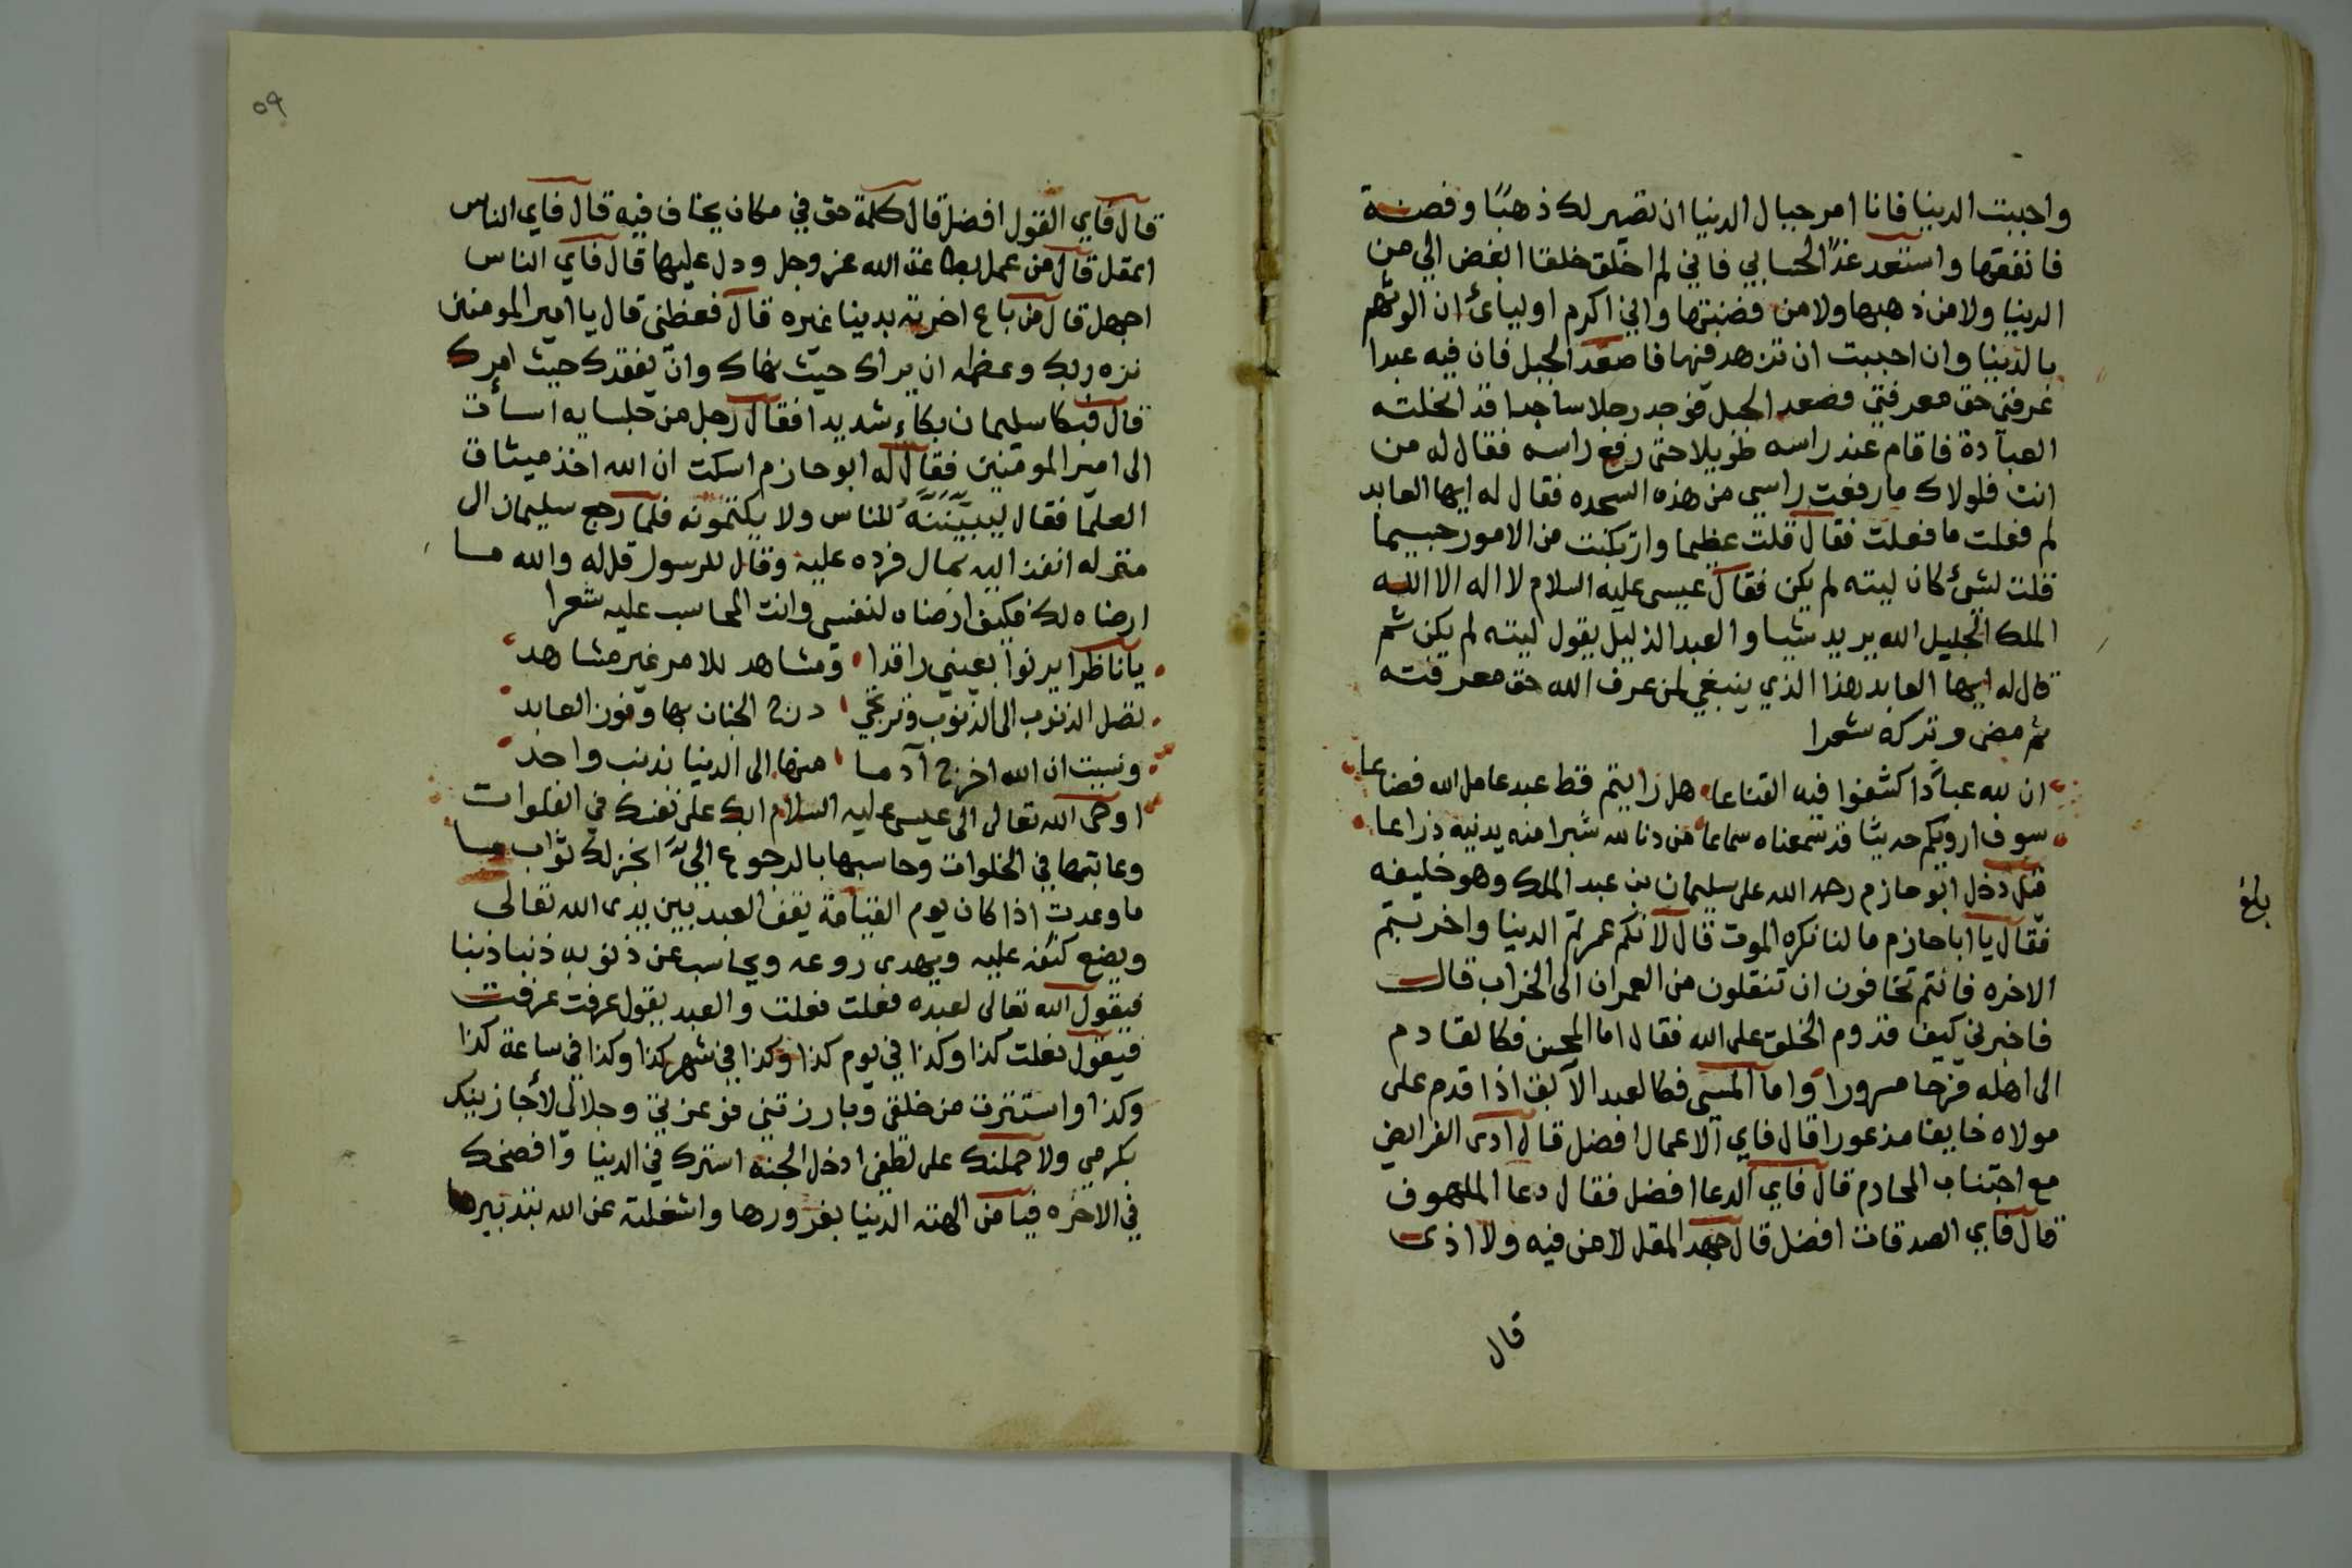 واحببت الدينا فانا امر حبال الدنيا ان تصير لك ذهبًا وفضة
فانفقها واستعد غدًا لحسابي فاني لم اخلق خلقا ابغض الي من
الدنيا ولا من ذهبها ولا من فضتها واني اكرم اوليائ ان الوثهم
بالدنيا وان احببت ان تزهد فيها فاصعد الجبل فان فيه عبدا
عرفني حق معرفتي فصعد الجبل فوجد رجلا ساجدا قد انحلته
العبادة فاقام عند راسه طويلا حتى رفع راسه فقال له من
انت فلولاك ما رفعت راسي من هذه السجده فقال له ايها العابد
لم فعلت ما فعلت فقال قلت عظيما وارتكبت من الامور جسيما
قلت لشئ كان ليته لم يكن فقال عيسى عليه السلام لا اله الا الله
الملك الجليل الله يريد شيا والعبد الذليل يقول ليته لم يكن ثم
قال له ايها العابد هذا الذي ينبغي لمن عرف الله حق معرفته
ثم مضى وتركه شعرا
ان لله عبادًا كشفوا فيه القناعا هل رايتم قط عبد عامل الله فضاعا
سوف ارويكم حديثا قد سمعناه سماعا من دنا لله شبرا منه يدنيه ذراعا
قيل دخل ابو حازم رحمه الله على سليمان بن عبد الملك وهو خليفه
فقال يا ابا حازم ما لنا نكره الموت قال لانكم عمرتم الدنيا واخربتم
الاخره فانتم تخافون ان تنقلون من العمران الى الخراب قال
فاخبرني كيف قدوم الخلق على الله فقال اما المحسن فكالقادم
الى اهله فرحا مسرورا واما المسي فكالعبد الآبق اذا قدم على
مولاه خايفا مذعورا قال فاي الاعمال افضل قال ادى الفرايض
مع اجتناب المحارم قال فاي الدعا افضل فقال دعا الملهوف
قال فاي الصدقات افضل قال جهد المقل لا من فيه ولا اذى
قال
بلغ
٥٩
قال فاي القول افضل قال كلمة حق في مكان يخاف فيه قال فاي الناس
اعقل قال من عمل بطاعة الله عز وجل ودل عليها قال فاي الناس
اجهل قال من باع اخرته بدينا غيره قال فعظني قال يا امير المومنين
نزه ربك وعظمه ان يراك حيث نهاك وان يفقدك حيث امرك
قال فبكا سليمان بكاءٍ شديدا فقال رجل من جلسايه اسأت
الى امير المومنين فقال له ابو حازم اسكت ان الله اخذ ميثاق
العلما فقال ليبيننه للناس ولا يكتمونه فلما رجع سليمان الى
منزله انفذ اليه بمال فرده عليه وقال للرسول قل له والله ما
ارضاه لك فكيف ارضاه لنفسي وانت المحاسب عليه شعرا
يا ناظرا يرنوا بعيني راقدا ومشاهد للامر غير مشاهد
تصل الذنوب الى الذنوب وترتجي درج الجنان بها وفوز العابد
ونسيت ان الله اخرج آدما منها الى الدنيا بذنب واحد
اوحى الله تعالى الى عيسى عليه السلام ابك على نفسك في الفلوات
وعاتبها في الخلوات وحاسبها بالرجوع اليَّ انجز لك ثواب ما
ما وعدت اذا كان يوم القيامة يقف العبد بين يدى الله تعالى
ويضع كنفه عليه ويهدى روعه ويحاسب عن ذنوبه ذنبا ذنبا
فيقول الله تعالى لعبده فعلت فعلت والعبد يقول عرفت عرفت
فيقول فعلت كذا وكذا في يوم كذا وكذا في شهر كذا وكذا في ساعة كذا
وكذا واستترت من خلقي وبارزتني فوعزتي وجلالي لأجازينك
بكرمي ولاحملنك على لطفي ادخل الجنه استرك في الدينا وافضحك
في الاخره فيا من الهته الدينا بغرورها واشغلته عن الله بتدبيرها